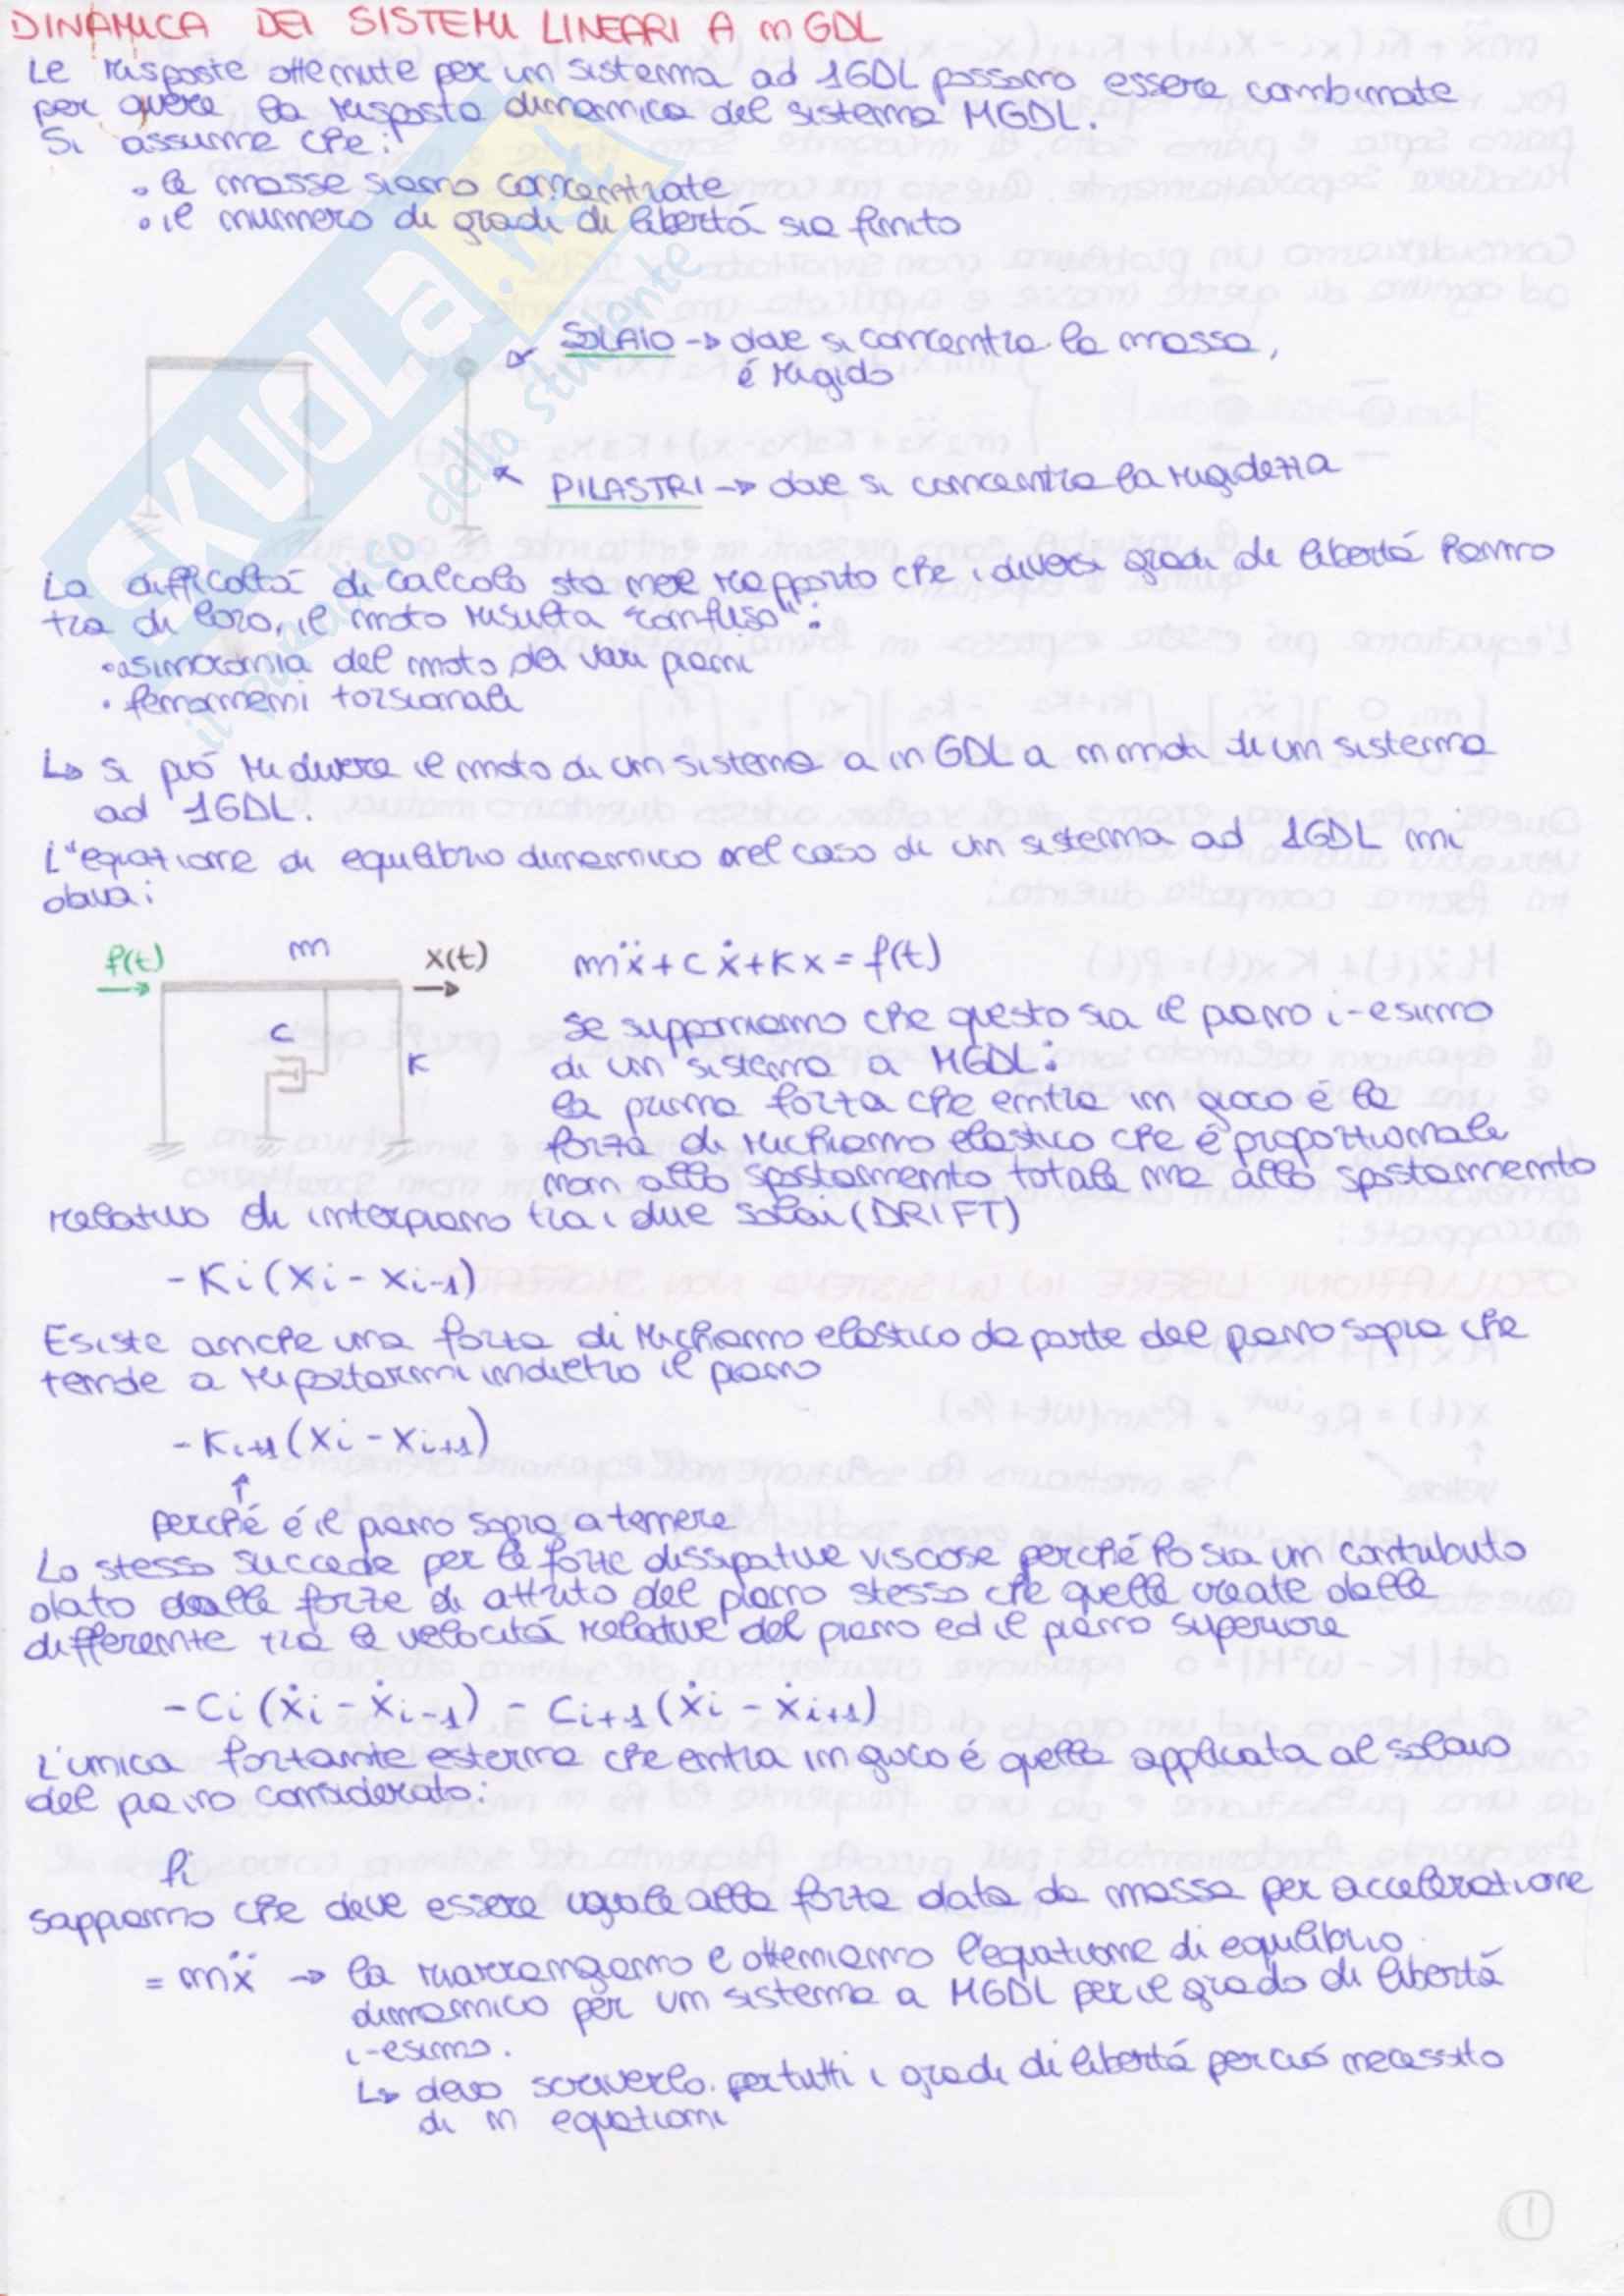 DINAMICA DEI SISTEMI LINEARI A m GDL
Le risposte ottenute per un sistema ad 1GDL possono essere combinate
per avere la risposta dinamica del sistema MGDL.
Si assume che:
• le masse siano concentrate
• il numero di gradi di libertá sia finito
SOLAIO → dove si concentra la massa,
é rigido
PILASTRI → dove si concentra la rigidezza
La difficoltá di calcolo sta nel rapporto che i diversi gradi di libertá hanno
tra di loro, il moto risulta "confuso":
• asincronia del moto dei vari piani
• fenomeni torsionali
↳ si puó ridurre il moto di un sistema a n GDL a n moti di un sistema
ad 1GDL.
L'equazione di equilibrio dinamico nel caso di un sistema ad 1GDL mi
dava:
f(t) m x(t)
c
K
mẍ + cẋ + Kx = f(t)
se supponiamo che questo sia il piano i-esimo
di un sistema a MGDL:
la prima forza che entra in gioco é la
forza di richiamo elastico che é proporzionale
non allo spostamento totale ma allo spostamento
relativo di interpiano tra i due solai (DRIFT)
- Ki (xi - xi-1)
Esiste anche una forza di richiamo elastico da parte del piano sopra che
tende a riportarmi indietro il piano
- Ki+1 (xi - xi+1)
↑
perché é il piano sopra a tenere
Lo stesso succede per le forze dissipative viscose perché ho sia un contributo
dato dalle forze di attrito del piano stesso che quelle create dalle
differenze tra le velocitá relative del piano ed il piano superiore
- Ci (ẋi - ẋi-1) - Ci+1 (ẋi - ẋi+1)
L'unica forzante esterna che entra in gioco é quella applicata al solaio
del piano considerato:
fi
sappiamo che deve essere uguale alla forza data da massa per accelerazione
= mẍ → la riarrangiamo e otteniamo l'equazione di equilibrio
dinamico per un sistema a MGDL per il grado di libertá
i-esimo.
↳ devo scriverlo per tutti i gradi di libertá perció necessito
di n equazioni
1
SKUOLA.net
il paradiso dello studente